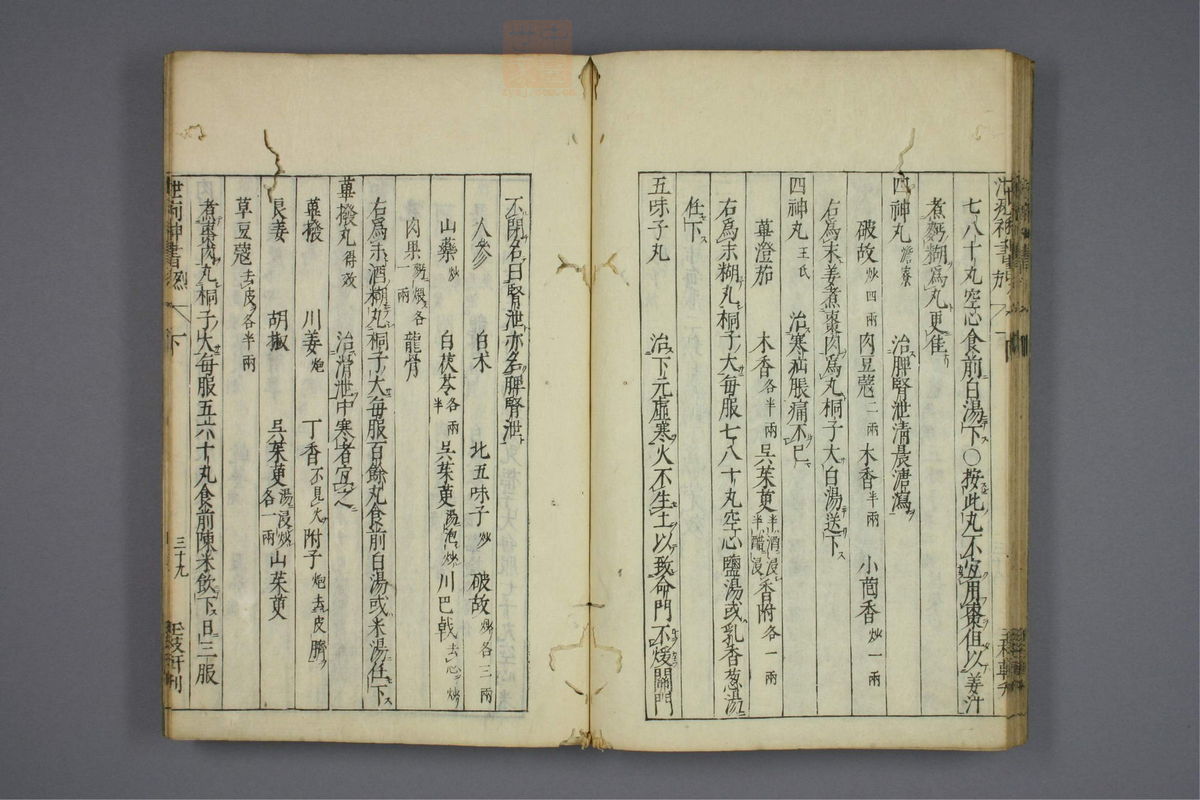 七八十丸空心食前白湯下○按此丸不宜用棗但以姜汁
煮麪糊爲丸更佳
四神丸 澹寮 治脾腎泄清晨溏瀉
破故 炒四兩 肉豆蔻 二兩 木香 半兩 小茴香 炒一兩
右爲末姜煮棗肉爲丸桐子大白湯送下
四神丸 王氏 治寒疝脹痛不已
蓽澄茄 木香 各半兩 吳茱萸 半酒浸半醋浸 香附 各一兩
右爲末糊丸桐子大每服七八十丸空心鹽湯或乳香葱湯
任下
五味子丸 治下元虛寒火不生土以致命門不煖關門
不閉名曰腎泄亦名脾腎泄
人參 白术 北五味子 炒 破故 炒各三兩
山藥 炒 白茯苓 各兩半 吳茱萸 湯泡炒 川巴戟 去心炒
肉果 麪煨各一兩 龍骨
右爲末酒糊丸桐子大每服百餘丸食前白湯或米湯任下
蓽撥丸 得效 治滑泄中寒者宜之
蓽撥 川姜 炮 丁香 不見火 附子 炮去皮臍
良姜 胡椒 吳茱萸 湯浸炒各一兩 山茱萸
草豆蔻 去皮各半兩
煮棗肉丸桐子大每服五六十丸食前陳米飲下日三服
下
三十九